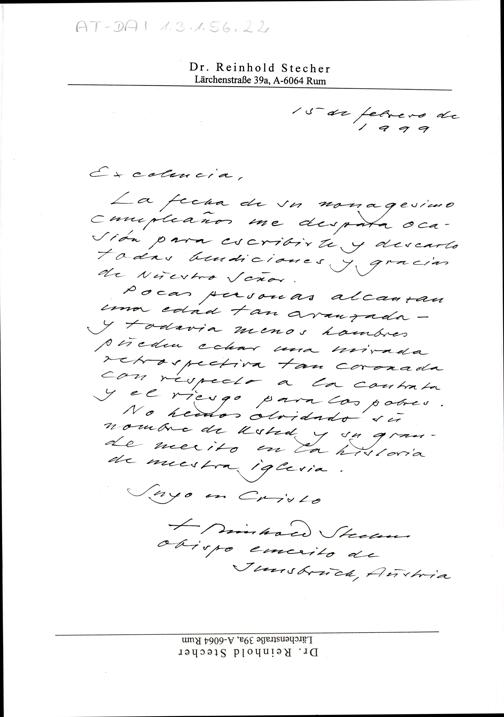 AT-DAI 1.3.1.56.22
Dr. Reinhold Stecher
Lärchenstraße 39a, A-6064 Rum
15 de febrero de
1999
Excelencia,
La fecha de su nonagesimo
cumpleaños me despata oca-
sión para escribirle y descarlo
todas bendiciones y gracias
de Nuestro Señor.
Pocas personas alcanzan
una edad tan avanzada –
y todavia menos hombres
pueden echar una mirada
retrospectiva tan coronada
con respecto a la contrata
y el riesgo para los pobres.
No hemos olvidado su
nombre de Usted y su gran-
de merito en la historia
de nuestra iglesia.
Suyo en Cristo
+ Reinhold Stecher
obispo emerito de
Innsbruck, Austria
Dr. Reinhold Stecher
Lärchenstraße 39a, A-6064 Rum